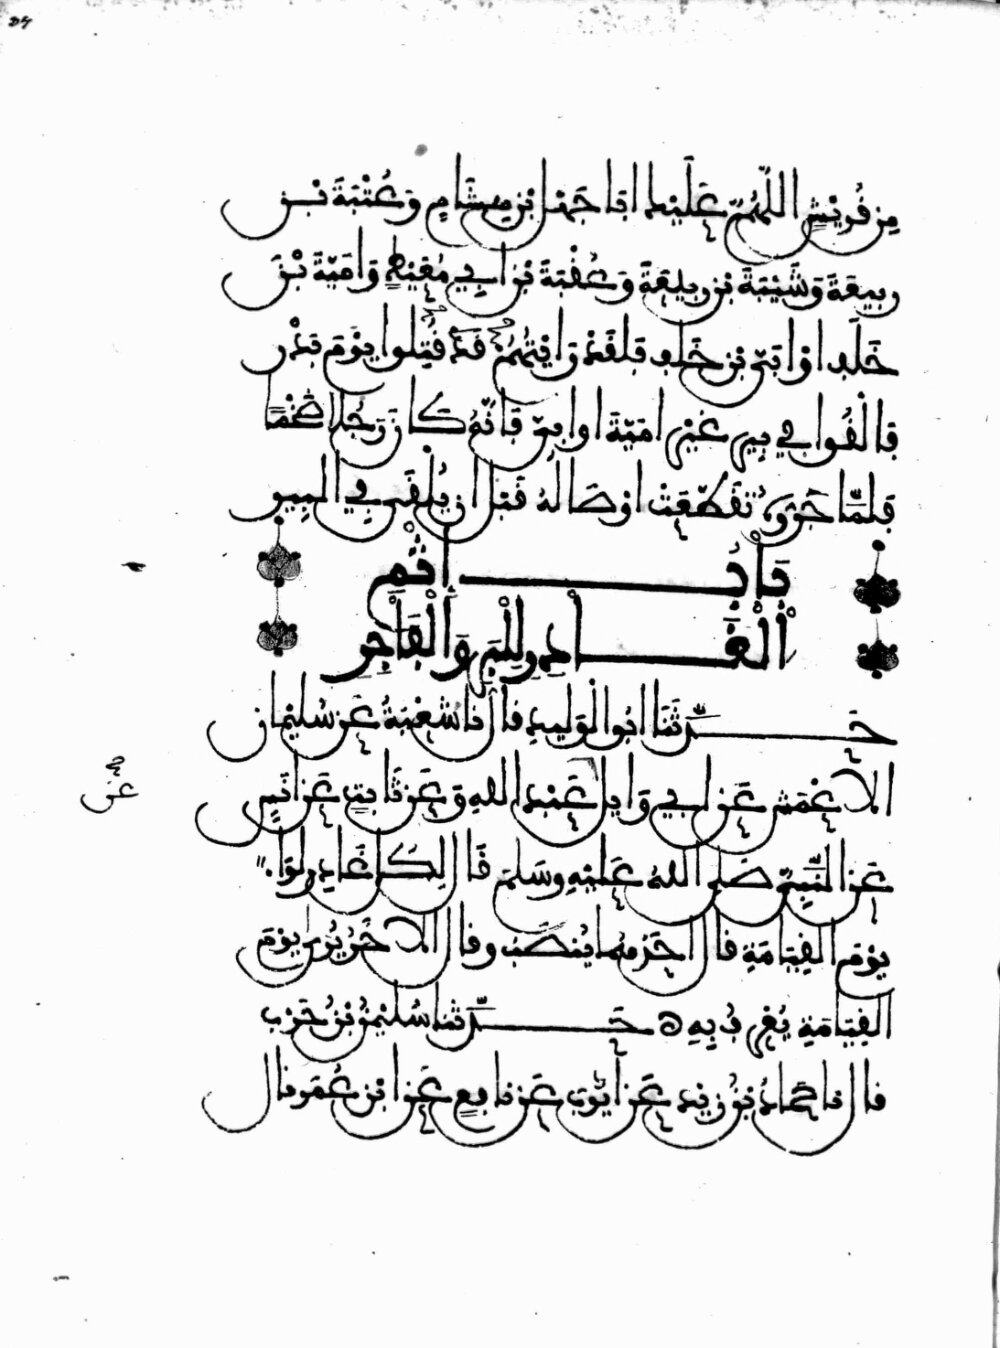 من قريش اللهم عليك ابا جهل ابن هشام وعتبة بن
ربيعة وشيبة بن ربيعة وعقبة بن ابي معيط وامية بن
خلف او ابي بن خلف فلقد رايتهم قد قتلوا يوم بدر
فالقوا في بير غير امية او ابي فانه كان رجلا ضخما
فلما جروه تقطعت اوصاله قبل ان يلقى في البير
باب اثم
الغادر للبر والفاجر
حدثنا ابو الوليد قال نا شعبة عن سليمان
الاعمش عن ابي وايل عن عبد الله وعن ثابت عن انس
عن النبي صلى الله عليه وسلم قال لكل غادر لوا
يوم القيامة قال احدهما ينصب وقال الاخر يرى يوم
القيامة يعرف به ه حدثنا سليمن بن حرب
قال نا حماد بن زيد عن ايوب عن نافع عن ابن عمر قال
عن